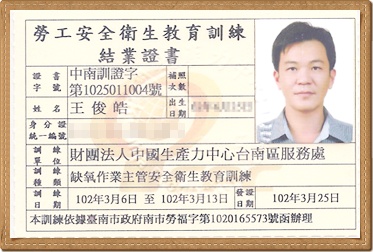 勞工安全衛生教育訓練
結業證書
證書字號 中南訓證字第1025011004號 補照次數
姓名 王俊皓 出生日期
身分證統一編號
訓練單位 財團法人中國生產力中心台南區服務處
訓練種類 缺氧作業主管安全衛生教育訓練
訓練日期 102年3月6日 至 102年3月13日 發證日期 102年3月25日
本訓練依據臺南市政府南市勞福字第1020165573號函辦理